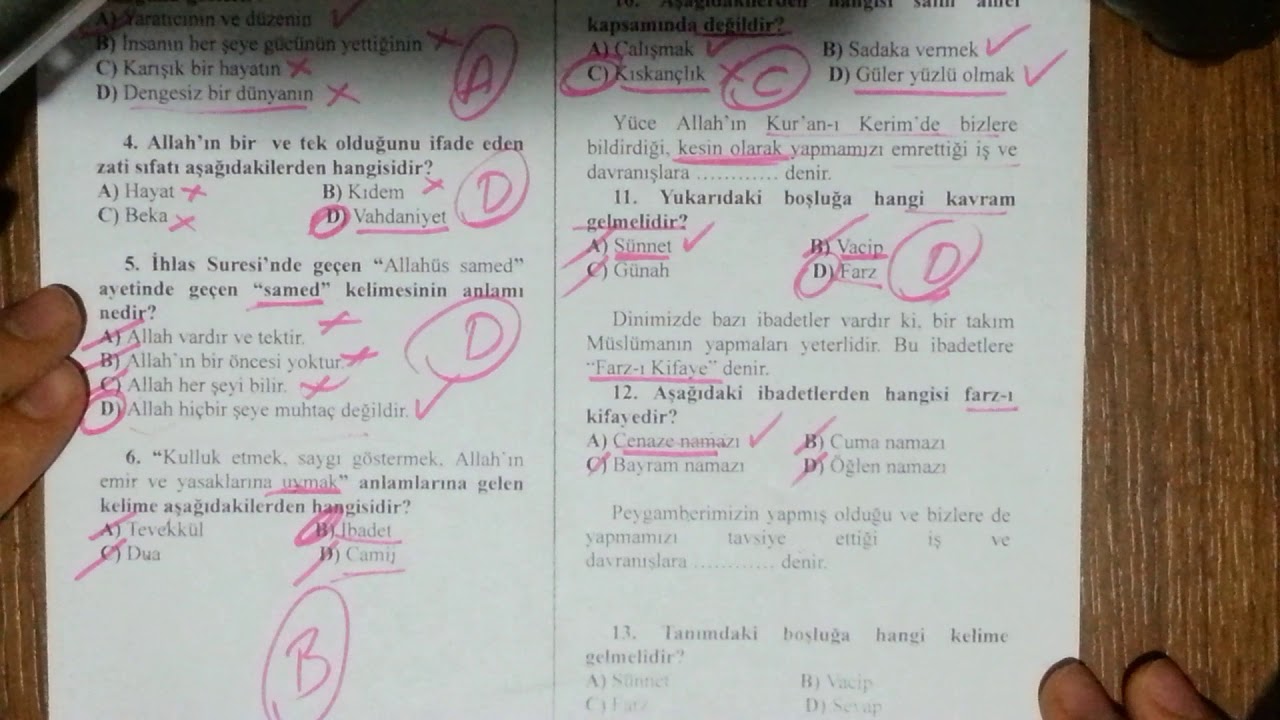 A) Yaratıcının ve düzenin
B) İnsanın her şeye gücünün yettiğinin
C) Karışık bir hayatın
D) Dengesiz bir dünyanın
A
4. Allah'ın bir ve tek olduğunu ifade eden
zati sıfatı aşağıdakilerden hangisidir?
A) Hayat B) Kıdem
C) Beka D) Vahdaniyet
D
5. İhlas Suresi'nde geçen "Allahüs samed"
ayetinde geçen "samed" kelimesinin anlamı
nedir?
A) Allah vardır ve tektir.
B) Allah'ın bir öncesi yoktur.
C) Allah her şeyi bilir.
D) Allah hiçbir şeye muhtaç değildir.
D
6. "Kulluk etmek, saygı göstermek, Allah'ın
emir ve yasaklarına uymak" anlamlarına gelen
kelime aşağıdakilerden hangisidir?
A) Tevekkül B) İbadet
C) Dua D) Camij
B
10. Aşağıdakilerden hangisi salih amel
kapsamında değildir?
A) Çalışmak B) Sadaka vermek
C) Kıskançlık D) Güler yüzlü olmak
C
Yüce Allah'ın Kur'an-ı Kerim'de bizlere
bildirdiği, kesin olarak yapmamızı emrettiği iş ve
davranışlara ............ denir.
11. Yukarıdaki boşluğa hangi kavram
gelmelidir?
A) Sünnet B) Vacip
C) Günah D) Farz
D
Dinimizde bazı ibadetler vardır ki, bir takım
Müslümanın yapmaları yeterlidir. Bu ibadetlere
"Farz-ı Kifaye" denir.
12. Aşağıdaki ibadetlerden hangisi farz-ı
kifayedir?
A) Cenaze namazı B) Cuma namazı
C) Bayram namazı D) Öğlen namazı
Peygamberimizin yapmış olduğu ve bizlere de
yapmamızı tavsiye ettiği iş ve
davranışlara ............ denir.
13. Tanımdaki boşluğa hangi kelime
gelmelidir?
A) Sünnet B) Vacip
C) Farz D) Sevap